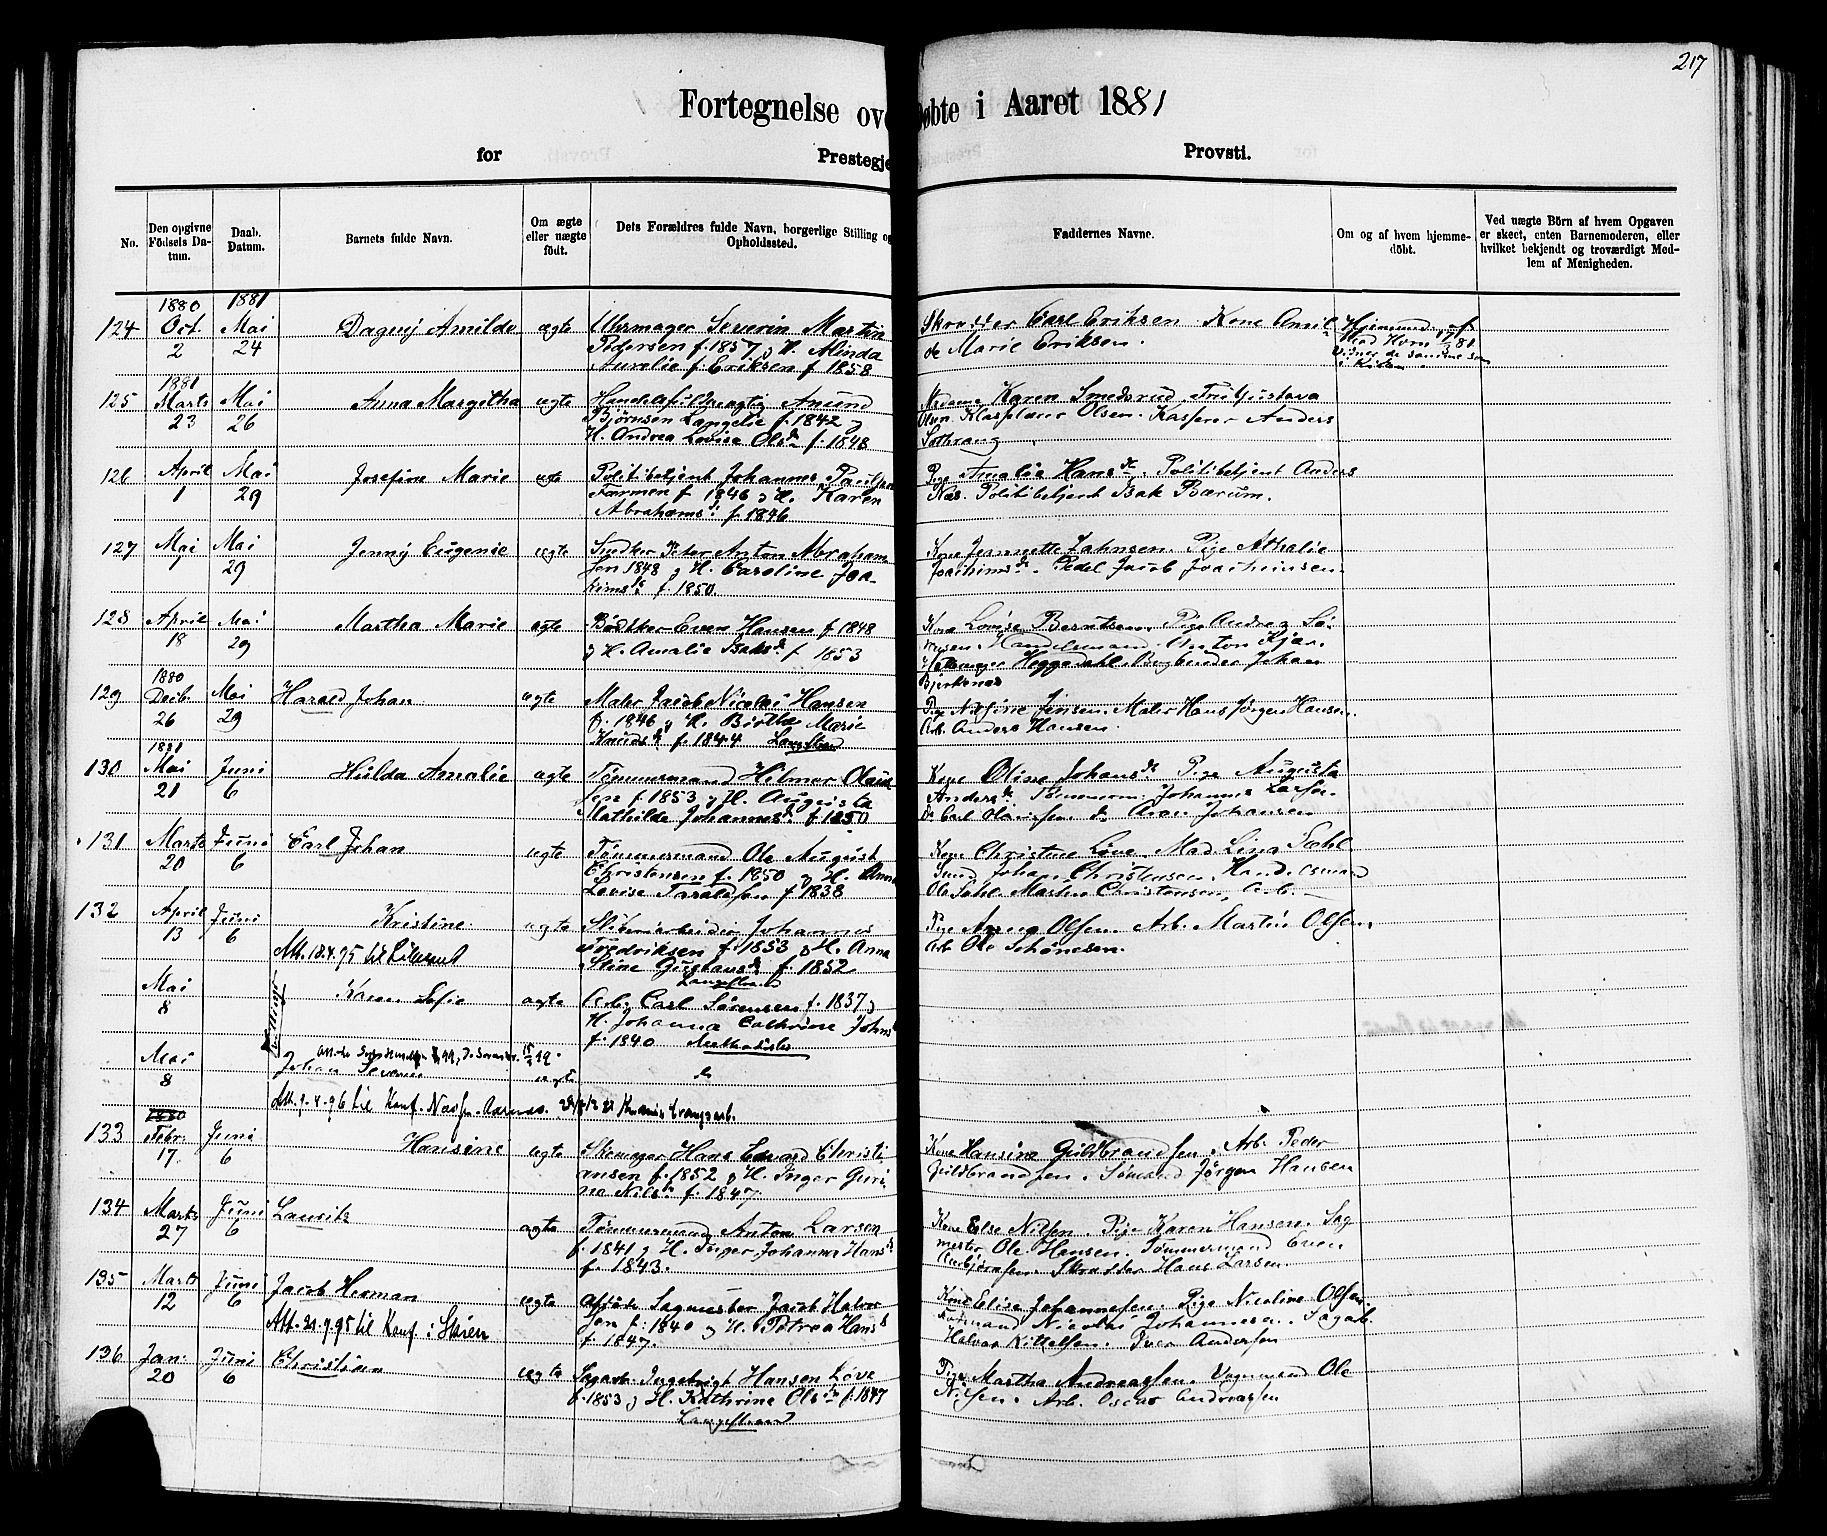 217
Fortegnelse ove
øbte i Aaret 1881
for
Prestegje
Provsti.
No.
Den opgivne Födsels Da-
tum.
Daab.
Datum.
Barnets fulde Navn.
Om ægte
eller uægte
födt.
Dets Forældres fulde Navn, borgerlige Stilling og
Opholdssted.
Faddernes Navne.
Om og af hvem hjemme-
döbt.
Ved uægte Börn af hvem Opgaven
er skeet, enten Barnemoderen, eller
hvilket bekjendt og troværdigt Med-
lem af Menigheden.
1880 1881
124 Oct. Mai Dagny Amilde ægte Uhrmager Severin Martin
2 24 Pedersen f. 1857 og H. Alinda
Aurelie f. Eriksen f 1858
Skrædder Carl Eriksen. Kone Amil
de Marie Eriksen.
Mad Horn 12/3 81
Vidner de samme som
i Kirken.
1881
125 Marts Mai Anna Margitha ægte Anund
23 26 Bjørnsen Langelie f. 1842 og
H. Andrea Lovise Olsd f. 1848
Madame Karen Smedsrud. Gustava
Olsen. Kasserer Anders
126 April Mai Josefine Marie ægte Politibetjent Johannes
1 29 Farmen f 1846 og H. Karen
Abrahamsd. f. 1846
Pige Amalie Hansd. Politibetjent Anders
Næs. Politibetjent Isak Bærum.
127 Mai Mai Jenny Eugenie ægte Snedker Peter Anton Abraham
1 29 sen 1848 og H. Caroline Joa
kimsd f. 1850.
Kone Jennette Jahnsen. Pige Athalie
Joachimsd. Pedel Jacob Joachimsen.
128 April Mai Martha Marie ægte Bødker Even Hansen f 1848
18 29 og H. Amalie Isaksd f 1853
Kone Lovise Berntsen. Pige Andrea Sø-
rensen. Handelsmand Anton Kjær.
Heggedahl. Bogbinder Johan
Bjerknæs
1880
129 Decbr. Mai Harald Johan ægte Maler Jacob Nicolai Hansen
26 29 f. 1846 og H. Birthe Marie
Knudsd f. 1844
Pige Jensen. Maler Hans Jørgen Hansen.
Arb. Anders Hansen.
1881
130 Mai Juni Hulda Amalie ægte Tømmermand Hilmer Olaus
21 6 sen f. 1853 og H. Augusta
Mathilde Johannesd f. 1850
Kone Oline Johansd Pige Augusta
Andersd. Johannes Larsen.
do Carl do Aron Johansen
131 Marts Juni Carl Johan ægte Tømmermand Ole August
20 6 Christensen f. 1850 og H. Anne
Lovise Taraldsen f 1838
Kone Christine Løve. Mad. Lina
Johan Christensen.
Ole Martin Christensen, Arb.
132 April Juni Kristine ægte Johannes
13 6 Fredriksen f. 1853 og H. Anna
Att. 18.4.95 til Lillesand Stine Gustavsd f. 1852
Langestrand
Pige Anna Olsen. Arb. Martin Olsen.
Arb Ole
Mai Karen Sofie ægte Arb. Carl Sørensen f. 1837 og
8 H. Johanna Cathrine Johnsd
f. 1840 Methodister
Mai Johan Severin ægte do
8
Att. 9.4.96 til Konf.
1880
133 Febr. Juni Hansine ægte Skomager Hans Edvard Christi
17 6 ansen f. 1852 og H. Inger Guri
ne Nilsd f. 1847.
Kone Hansine Guldbrandsen. Arb. Peder
Guldbrandsen. Sømand Jørgen Hansen
134 Marts Juni Lauritz ægte Tømmermand Anton Larsen
27 6 f. 1841 og H. Inger Johanne Hansd
f. 1843.
Kone Else Nilsen. Pige Karen Hansen. Sag
mester Ole Hansen. Tømmermand Even
Skrædder Hans Larsen.
135 Marts Juni Jacob Herman ægte Afdøde Sagmester Jacob Halvor
12 6 sen f. 1840 og H. Petrea Hansd
Att. 21.9.95 til Konf. i Skien f. 1847.
Kone Elise Johannesen. Pige Nicoline Olsen.
Nicolai Johannesen. Sagarb.
Halvor Kittelsen. Iver Andersen
136 Jan. Juni Christian ægte Sagarb. Ingebrigt Hansen Løve
20 6 f. 1853 og H. Kathrine Olsd f. 1847
Langestrand
Pige Martha Andreassen. Vognmand Ole
Nilsen. Arb. Oscar Andreassen